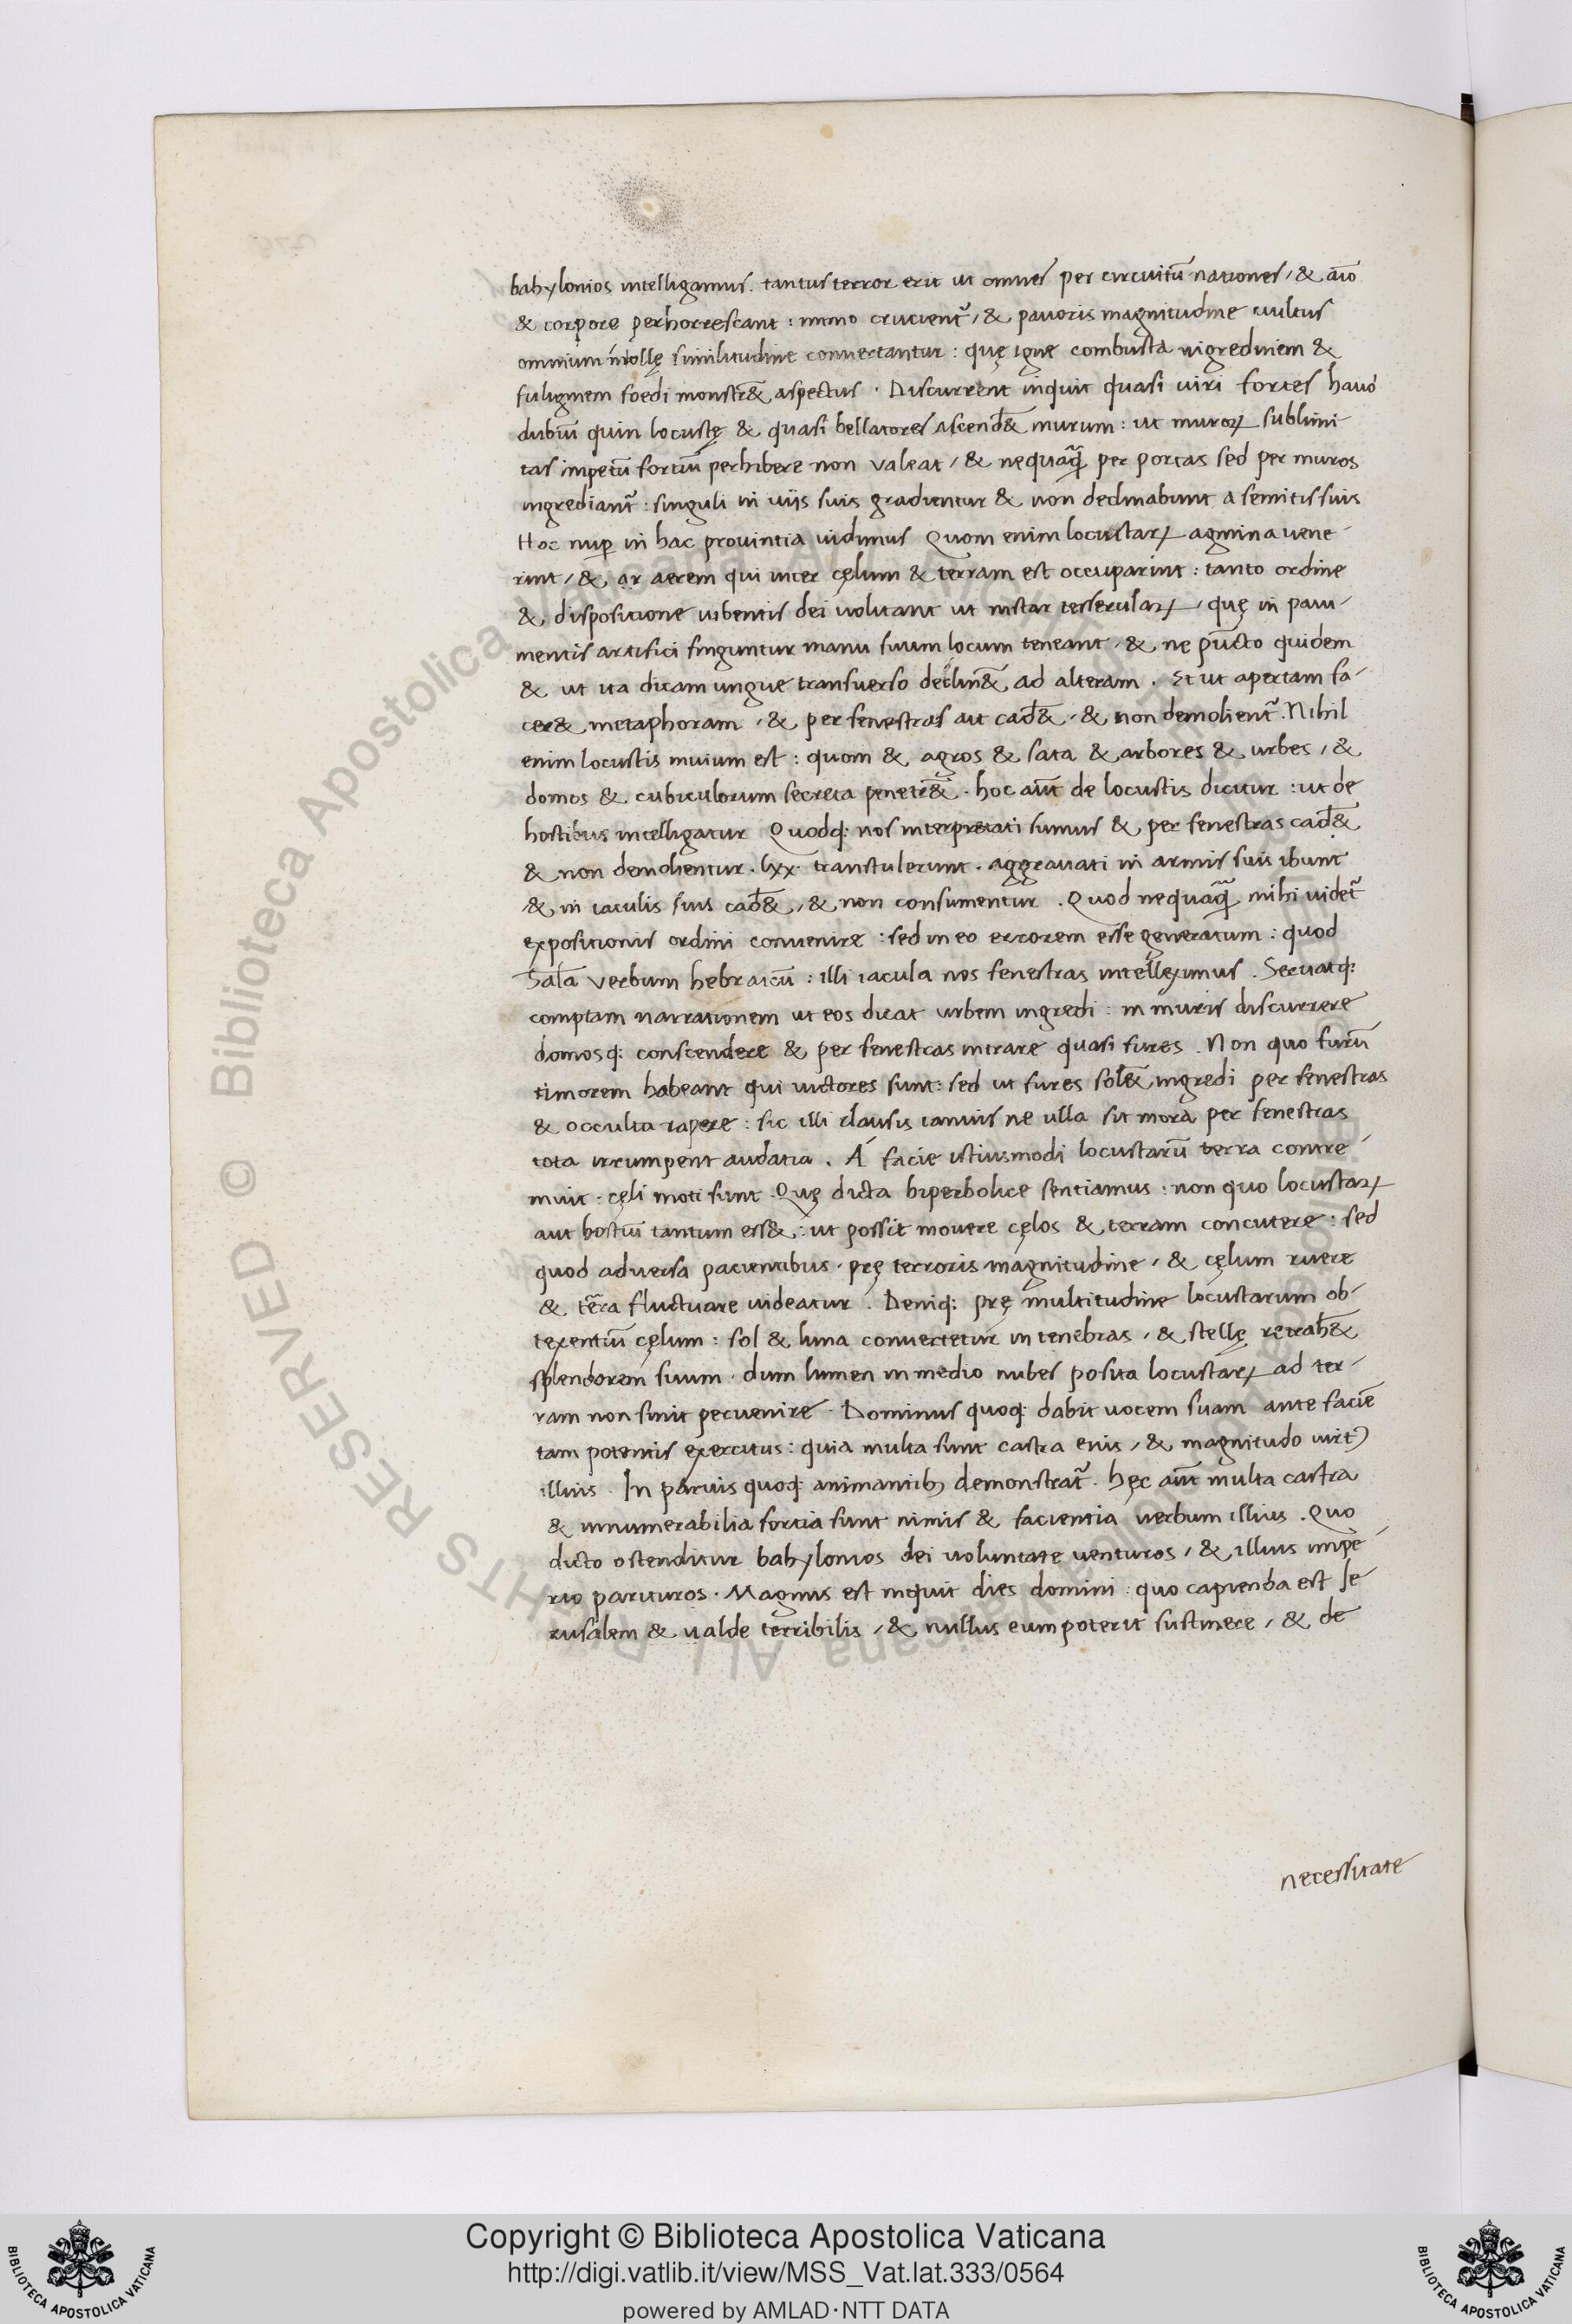 babylonios intelligamus. tantus terror erit ut omnes per circuitū nationes, & aīo
& corpore perhorrescant : immo crucient᷑, & pauoris magnitudine uultus
omnium mollę similitudine conuertantur : quę igne combusta nigredinem &
fuliginem foedi monstr̄& aspectus . Discurrent inquit quasi uiri fortes haud
dubiū quin locustę & quasi bellatores ascend̄& murum : ut muroꝝ sublimi
tas impetū fortiū perhibere non valeat, & nequāq̄ per portas sed per muros
ingrediant᷑ : singuli in uiis suis gradientur & non declinabunt a semitis suis
Hoc nuꝑ in hac prouintia uidimus Quom enim locustaꝝ agmina uene-
rint, & ar aerem qui inter cęlum & terram est occuparint : tanto ordine
& dispositione iubentis dei uolitant ut instar tesserulaꝝ, quę in paui-
mentis artifici finguntur manu suum locum teneant, & ne pūcto quidem
& ut ita dicam ungue transuerso declin̄& ad alteram . Et ut apertam fa-
cer& metaphoram, & per fenestras ait cad̄&, & non demolient᷑. Nihil
enim locustis inuium est : quom & agros & sata & arbores & urbes, &
domos & cubiculorum secreta penetr̄& . hoc aūt de locustis dicitur : ut de
hostibus intelligatur Quodq: nos interpretati sumus & per fenestras cad̄&
& non demolientur . lxx. transtulerunt . aggrauati in armis suis ibunt
& in iaculis suis cad̄&, & non consumentur . Quod nequāq̄ mihi uidet᷑
expositionis ordini conuenire : sed in eo errorem esse generatum : quod
Salā verbum hebraicū : illi iacula nos fenestras intelleximus . Seruatq:
comptam narrationem ut eos dicat urbem ingredi : in muris discurrere
domosq: conscendere & per fenestras intrare quasi fures . Non quo furū
timorem habeant qui uictores sunt : sed ut fures sol̄& ingredi per fenestras
& occulta rapere : sic illi clausis ianuis ne ulla sit mora per fenestras
tota irrumpent audatia . Á facie istiusmodi locustarū terra contre-
muit : cęli moti sunt . Quę dicta hiperbolice sentiamus : non quo locustaꝝ
aut hostiū tantum ess& : ut possit mouere cęlos & terram concutere : sed
quod aduersa patientibus, prę terroris magnitudine, & cęlum ruere
& tērra fluctuare uideatur . Deniq: prę multitudine locustarum ob-
texentiū cęlum : sol & luna conuertetur in tenebras, & stellę retrah̄&
splendorem suum . dum lumen in medio nubes posita locustaꝝ ad ter-
ram non sinit peruenire . Dominus quoq: dabit uocem suam ante faciē
tam potentis exercitus : quia multa sunt castra eius, & magnitudo uirtꝰ
illius . In paruis quoq: animantibꝫ demonstrat᷑ . hęc aūt multa castra
& innumerabilia fortia sunt nimis & facientia uerbum illius . Quo
dicto ostenditur babylonios dei uoluntate uenturos, & illius impe-
rio parituros . Magnus est inquit dies domini : quo capienda est Je-
rusalem & ualde terribilis, & nullus eum poterit sustinere, & de
necessitate
© Biblioteca Apostolica Vaticana ALL RIGHTS RESERVED
BIBLIOTECA APOSTOLICA VATICANA
Copyright © Biblioteca Apostolica Vaticana
http://digi.vatlib.it/view/MSS_Vat.lat.333/0564
powered by AMLAD·NTT DATA
BIBLIOTECA APOSTOLICA VATICANA